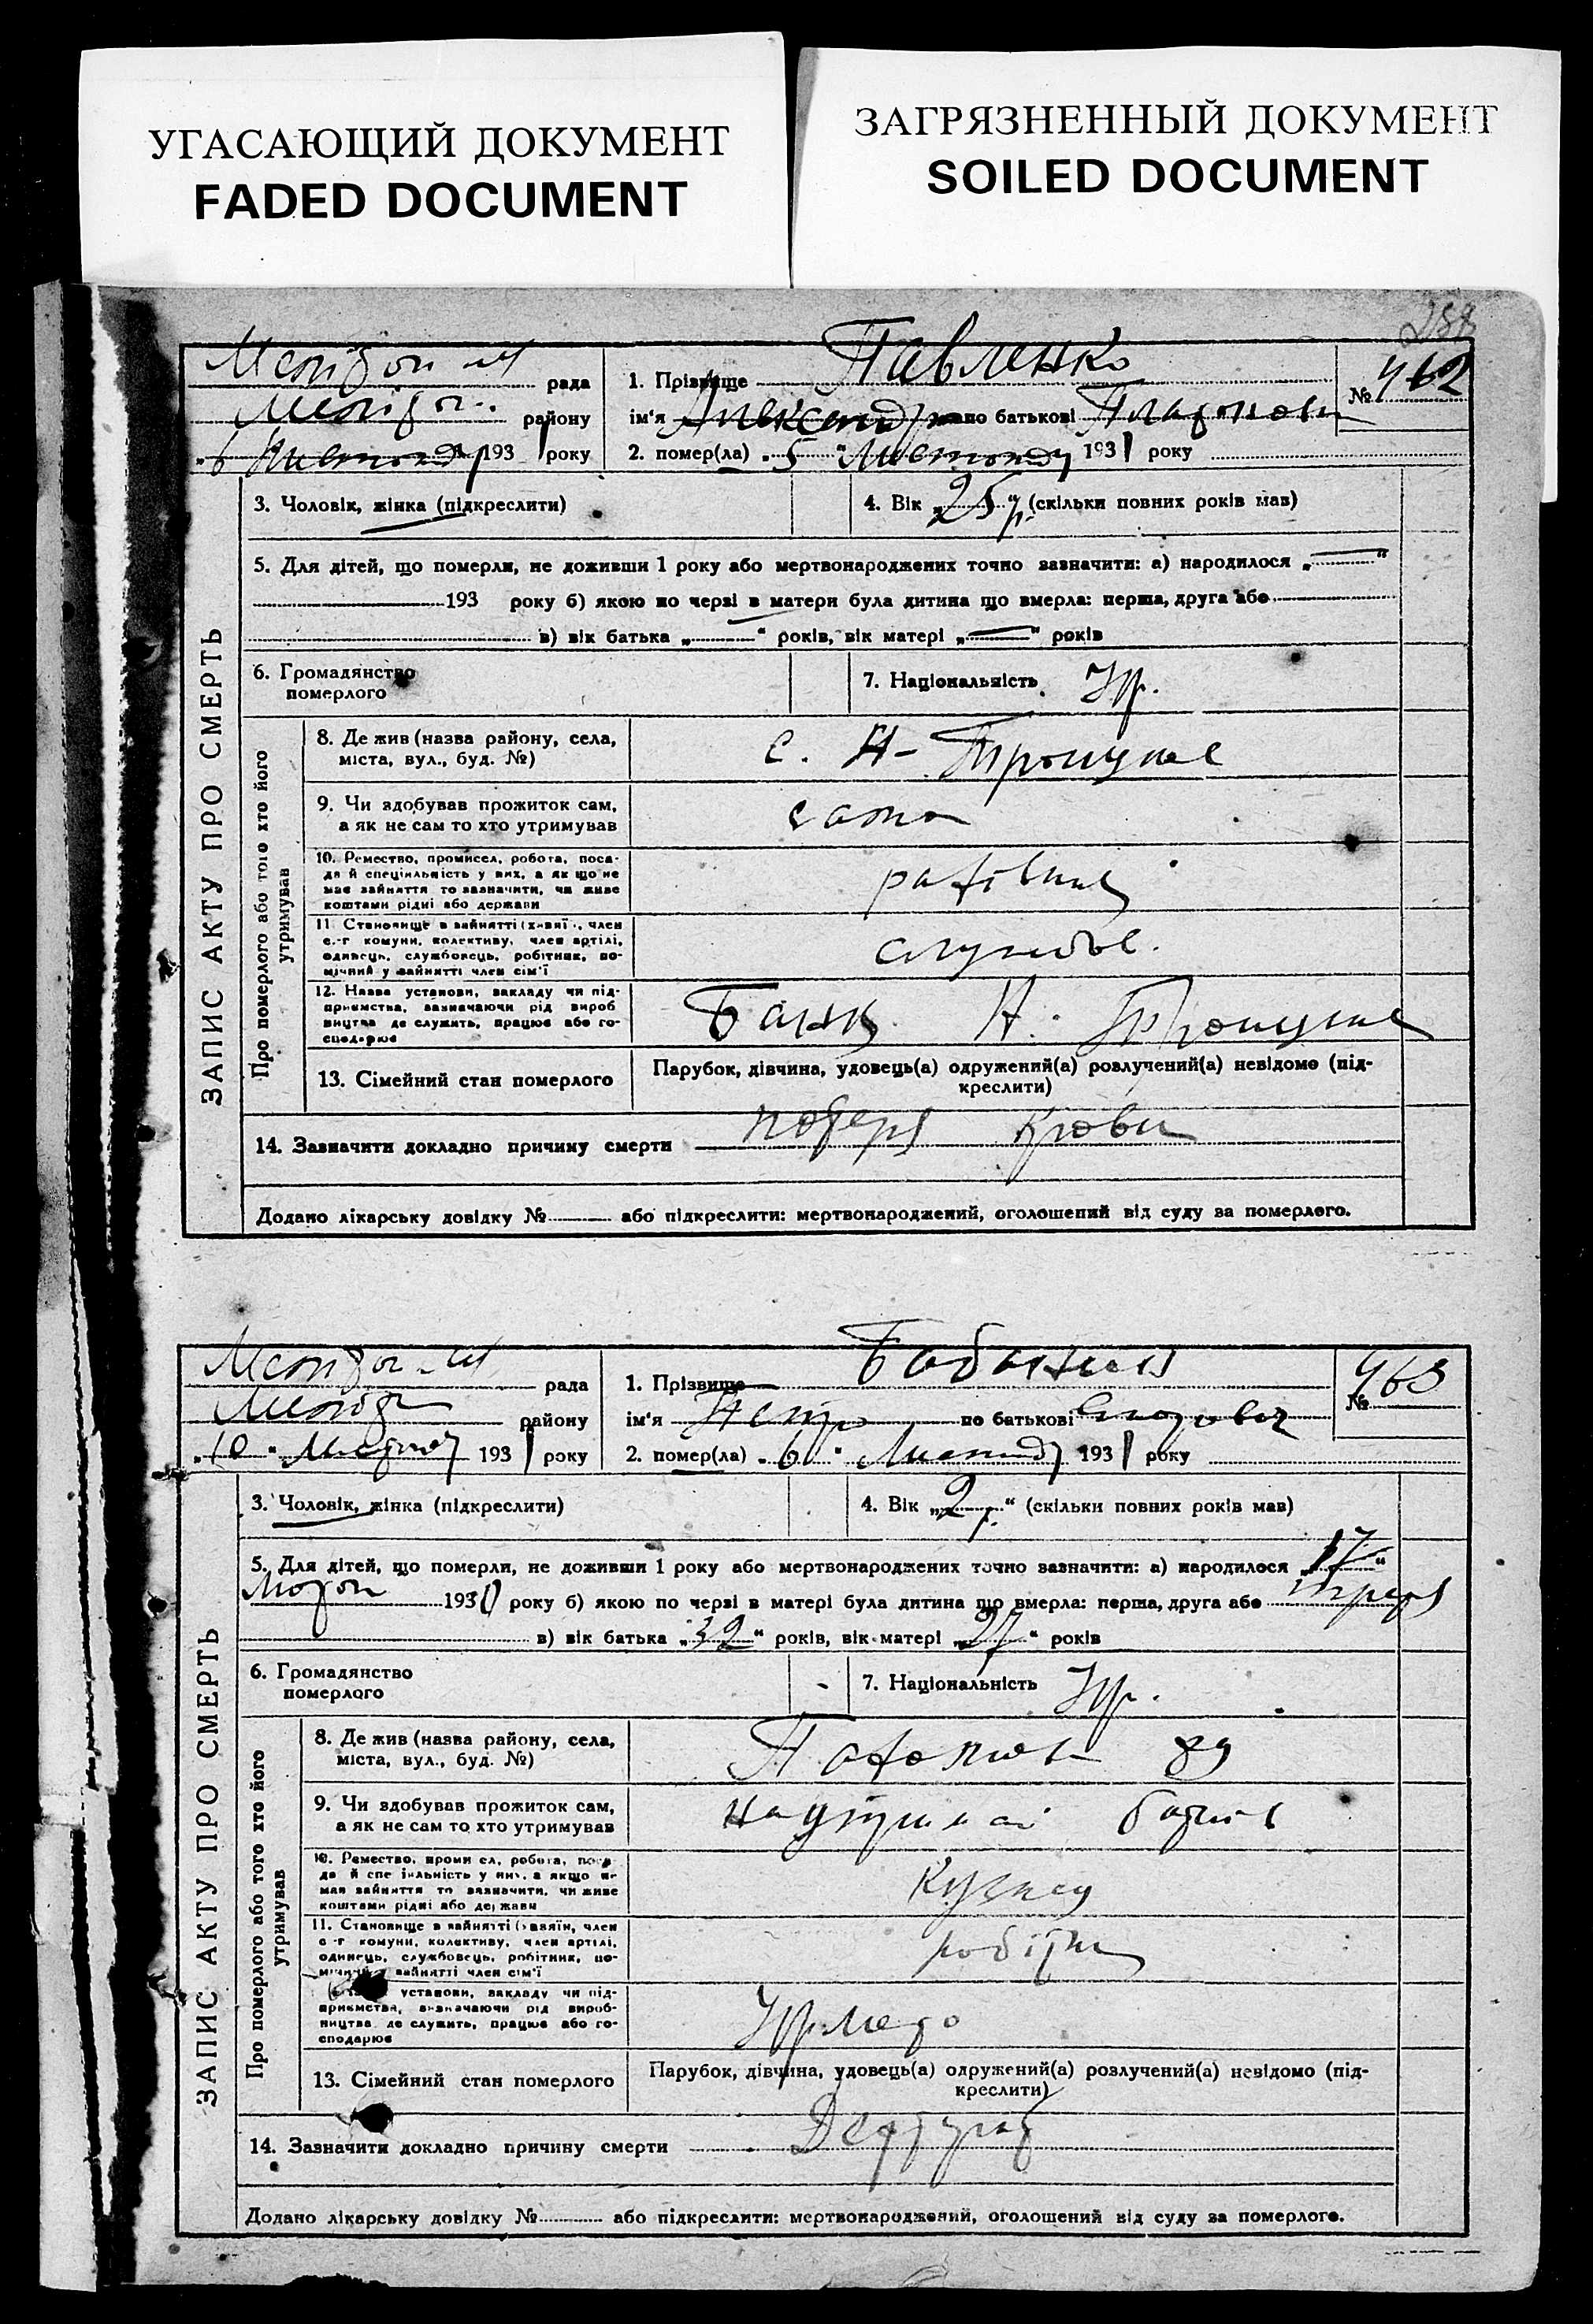 УГАСАЮЩИЙ ДОКУМЕНТ
FADED DOCUMENT
ЗАГРЯЗНЕННЫЙ ДОКУМЕНТ
SOILED DOCUMENT
рада
району
6 193 1 року
1. Прізвище Павленко
ім'я по батькові
2. помер(ла) „5" Листопаду 1931 року
№ 462
ЗАПИС АКТУ ПРО СМЕРТЬ
3. Чоловік, жінка (підкреслити)
4. Вік „25 р." (скільки повних років мав)
5. Для дітей, що померли, не доживши 1 року або мертвонароджених точно зазначити: а) народилося „—"
193 року б) якою по черзі в матери була дитина що вмерла: перша, друга або
в) вік батька „—" років, вік матері „—" років
6. Громадянство
померлого
7. Національність Укр.
Про померлого або того хто його
утримував
8. Де жив (назва району, села,
міста, вул., буд. №)
с. Н-Троицкое
9. Чи здобував прожиток сам,
а як не сам то хто утримував
сама
10. Ремество, промисел, робота, поса-
да й спеціяльність у них, а як що не
має зайняття то зазначити, чи живе
коштами рідні або держави
11. Становище в зайнятті (хазяїн, член
с.-г комуни, колективу, член артілі,
одинець, службовець, робітник, по-
мічний у зайнятті член сім'ї
службов.
12. Назва установи, закладу чи під-
приємства, зазначаючи рід вироб
ництва де служить, працює або го-
сподарює
Банк Н. Троицкое
13. Сімейний стан померлого
Парубок, дівчина, удовець(а) одружений(а) розлучений(а) невідомо (під-
креслити)
14. Зазначити докладно причину смерти потеря крови
Додано лікарську довідку № або підкреслити: мертвонароджений, оголошений від суду за померлого.
рада
району
„10" 193 1 року
1. Прізвище
ім'я Петр по батькові
2. помер(ла) „6" Листопаду 1931 року
№ 463
ЗАПИС АКТУ ПРО СМЕРТЬ
3. Чоловік, жінка (підкреслити)
4. Вік „2 р." (скільки повних років мав)
5. Для дітей, що померли, не доживши 1 року або мертвонароджених точно зазначити: а) народилося „17"
1930 року б) якою по черзі в матері була дитина що вмерла: перша, друга або
в) вік батька „32" років, вік матері „27" років
6. Громадянство
померлого
7. Національність Укр.
Про померлого або того хто його
утримував
8. Де жив (назва району, села,
міста, вул., буд. №)
89
9. Чи здобував прожиток сам,
а як не сам то хто утримував
10. Ремество, промисел, робота, поса-
да й спеціяльність у них, а якщо не
має зайняття то зазначити, чи живе
коштами рідні або держави
Кузнец
11. Становище в зайнятті (хазяїн, член
с.-г комуни, колективу, член артілі,
одинець, службовець, робітник, по-
мічний у зайнятті член сім'ї
робітн
установи, закладу чи під-
приємства, зазначаючи рід вироб-
ництва де служить, працює або го-
сподарює
13. Сімейний стан померлого
Парубок, дівчина, удовець(а) одружений(а) розлучений(а) невідомо (під-
креслити)
14. Зазначити докладно причину смерти
Додано лікарську довідку № або підкреслити: мертвонароджений, оголошений від суду за померлого.